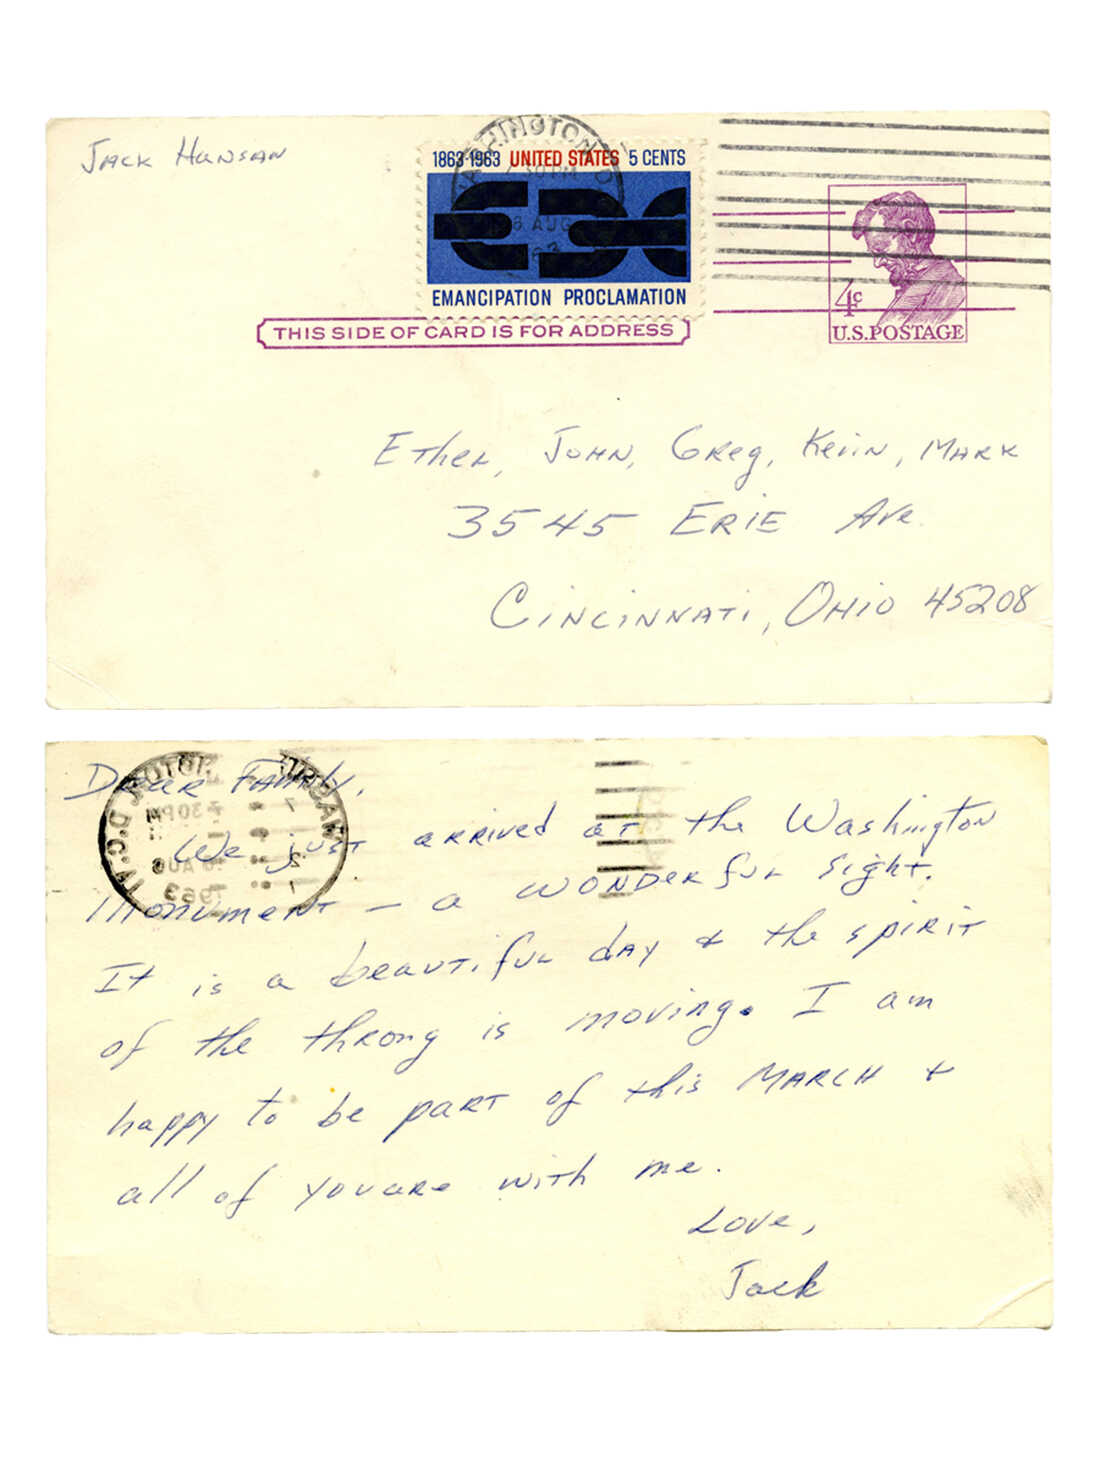 Jack Hansan
WASHINGTON, D.
1863-1963 UNITED STATES 5 CENTS
7 30 PM
AUG
EMANCIPATION PROCLAMATION
4c
U.S.POSTAGE
THIS SIDE OF CARD IS FOR ADDRESS
Ethel, John, Greg, Kevin, Mark
3545 Erie Ave.
Cincinnati, Ohio 45208
Dear Family,
We just arrived at the Washington
Monument — a wonderful sight.
It is a beautiful day & the spirit
of the throng is moving. I am
happy to be part of this MARCH &
all of you are with me.
Love,
Jack
7 30 PM
AUG
1963